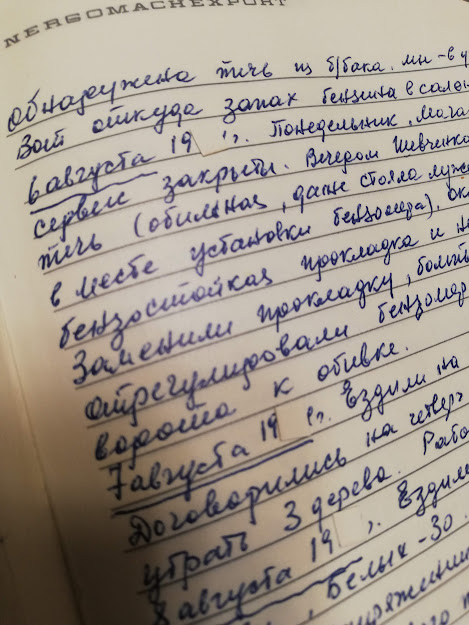 NERGOMACHEXPORT
обнаружена течь из б/бака. мн-в у
Вот откуда запах бензина в сало
6 августа 19 г. Понедельник, мага
сервис закрыты. Вечером Шевченк
течь (обильная, даже стояла луж
в месте установки бензомера), ок
бензостойкая прокладка и н
Заменили прокладку, болт
Отрегулировали бензомер
ворота к обивке.
7 августа 19 г. Ездили на
Договорились на четверг
убрать 3 дерева. Рабо
8 августа 19 г. Ездил
, Белых - 30.